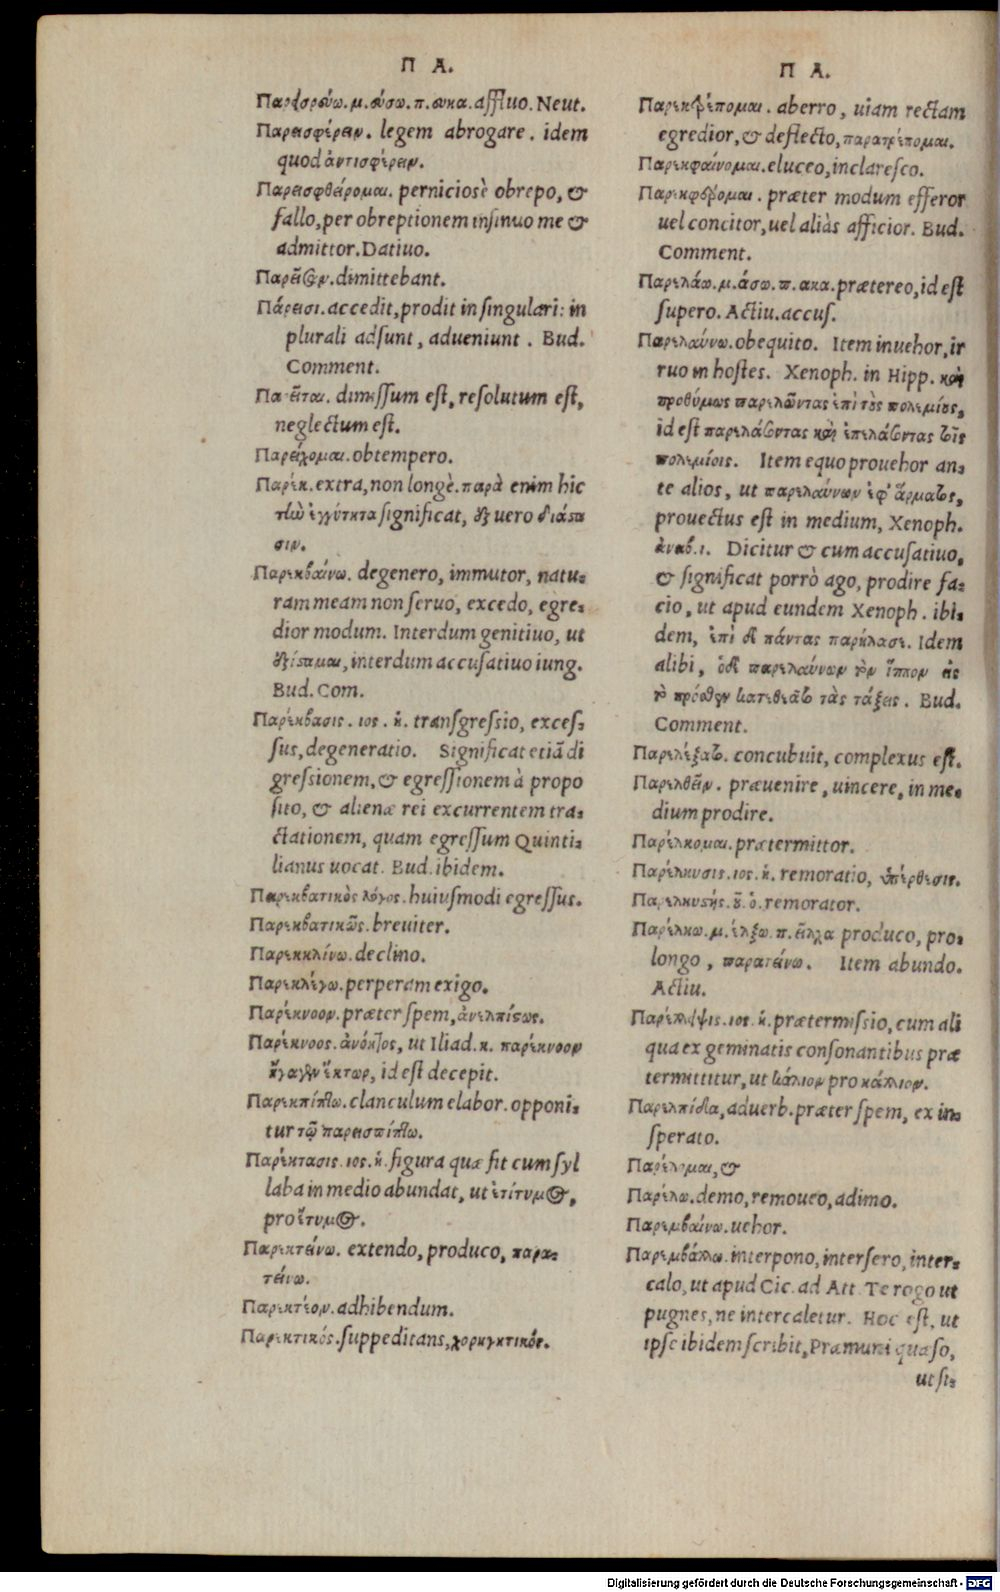 Π Α.
Παρεισρεύω. μ. εύσω. π. ευκα. affluo. Neut.
Παρεισφέρειν. legem abrogare. idem
quod ἀντισφέρειν.
Παρεισφθείρομαι. perniciosè obrepo, &
fallo, per obreptionem insinuo me &
admittor. Datiuo.
dimittebant.
Πάρεισι. accedit, prodit in singulari: in
plurali adsunt, adueniunt. Bud.
Comment.
Παρεῖται. dimissum est, resolutum est,
neglectum est.
Παρείχομαι. obtempero.
Παρέκ. extra, non longè. παρὰ enim hic
τὴν ἐγγύτητα significat, ἐξ uero διάστα
σιν.
Παρεκβαίνω. degenero, immutor, natu-
ram meam non seruo, excedo, egre-
dior modum. Interdum genitiuo, ut
ἐξίσταμαι, interdum accusatiuo iung.
Bud. Com.
Παρέκβασις. ιος. ἡ. transgressio, exces-
sus, degeneratio. Significat etiã di
gressionem, & egressionem à propo
sito, & alienæ rei excurrentem tra-
ctationem, quam egressum Quinti-
lianus uocat. Bud. ibidem.
Παρεκβατικὸς λόγος. huiusmodi egressus.
Παρεκβατικῶς. breuiter.
Παρεκκλίνω. declino.
Παρεκλέγω. perperam exigo.
Παρέκνοον. præter spem, ἀνελπίστως.
Παρέκνοος. ἀνόητος, ut Iliad. κ. παρέκνοον
ἤγαγεν ἕκτωρ, id est decepit.
Παρεκπίπτω. clanculum elabor. opponi-
tur τῷ παρεισπίπτω.
Παρέκτασις. ιος. ἡ. figura quæ fit cum syl
laba in medio abundat, ut ἐτίτυμος,
pro ἔτυμος.
Παρεκτείνω. extendo, produco, παρα-
τείνω.
Παρεκτέον. adhibendum.
Παρεκτικός. suppeditans, χορηγητικός.
Π Α.
Παρεκτρέπομαι. aberro, uiam rectam
egredior, & deflecto, παρατρέπομαι.
Παρεκφαίνομαι. eluceo, inclaresco.
Παρεκφέρομαι. præter modum efferor
uel concitor, uel aliàs afficior. Bud.
Comment.
Παρελάω. μ. άσω. π. ακα. prætereo, id est
supero. Actiu. accus.
Παρελαύνω. obequito. Item inuehor, ir
ruo in hostes. Xenoph. in Hipp. καὶ
προθύμως παρελῶντας ἐπὶ τοὺς πολεμίους,
id est παρελάσοντας καὶ ἐπελάσοντας τοῖς
πολεμίοις. Item equo prouehor an-
te alios, ut παρελαύνων ἐφ' ἅρματος,
prouectus est in medium, Xenoph.
ἀναβ. ι. Dicitur & cum accusatiuo,
& significat porrò ago, prodire fa-
cio, ut apud eundem Xenoph. ibi-
dem, ἐπὶ δὲ πάντας παρήλασε. Idem
alibi, ὁ δὲ παρελαύνων τὸν ἵππον εἰς
τὸ πρόσθεν κατεθεᾶτο τὰς τάξεις. Bud.
Comment.
Παρελέξατο. concubuit, complexus est.
Παρελθεῖν. præuenire, uincere, in me-
dium prodire.
Παρέλκομαι. prætermittor.
Παρέλκυσις. ιος. ἡ. remoratio, ὑπέρθεσις.
Παρελκυστής. οῦ. ὁ. remorator.
Παρέλκω. μ. έλξω. π. εῖλχα produco, pro-
longo, παρατείνω. Item abundo.
Actiu.
Παρέλλειψις. ιος. ἡ. prætermissio, cum ali
qua ex geminatis consonantibus præ
termittitur, ut κάλιον pro κάλλιον.
Παρελπίδα, aduerb. præter spem, ex in-
sperato.
Παρέλομαι, &
Παρέλω. demo, remoueo, adimo.
Παρεμβαίνω. uehor.
Παρεμβάλλω. interpono, intersero, inter-
calo, ut apud Cic. ad Att. Te rogo ut
pugnes, ne intercaletur. Hoc est, ut
ipse ibidem scribit, Præmuni quæso,
ut si-
Digitalisierung gefördert durch die Deutsche Forschungsgemeinschaft - DFG